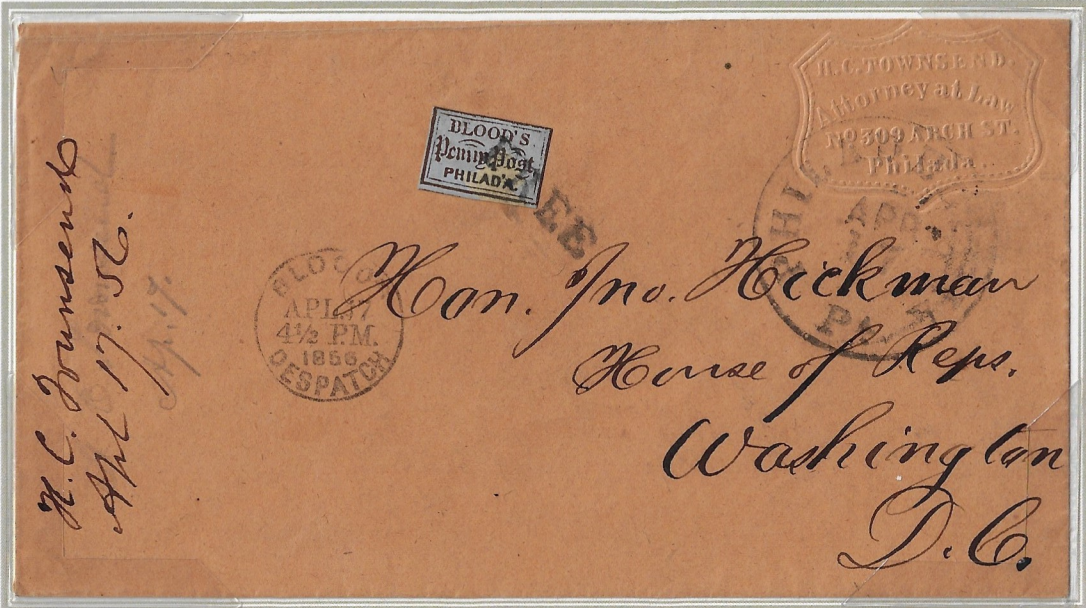 H. C. TOWNSEND.
Attorney at Law
No 309 ARCH ST.
Philada.
BLOOD'S
Penny Post
PHILAD'A.
FREE
PHILADA
APR
Pa.
BLOOD'S
APL 17
4½ P.M.
1856
DESPATCH
Hon. Jno. Hickman
House of Reps.
Washington
D.C.
H. C. Townsend
Apl 17. 56.
Ap. 17.